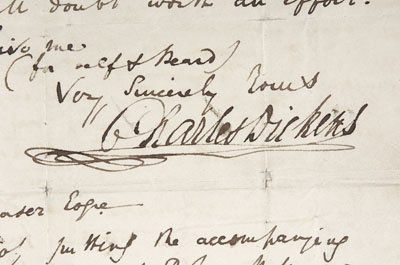 doubt worth an effort.
me
(for self & Beard)
Very Sincerely Yours
Charles Dickens
Esqre
putting the accompanying